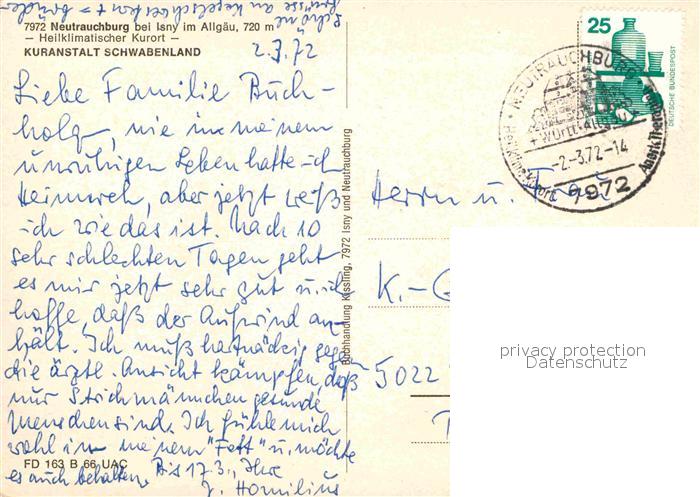 Schöne
7972 Neutrauchburg bei Isny im Allgäu, 720 m
— Heilklimatischer Kurort —
KURANSTALT SCHWABENLAND
2.3.72
Liebe Familie Buch-
holz, nie in meinem
unruhigen Leben hatte ich
Heimweh, aber jetzt weiß
ich wie das ist. Nach 10
sehr schlechten Tagen geht
es mir jetzt sehr gut u. ich
hoffe, daß der Aufwind an-
hält. Ich muß hartnäckig gegen
die ärztl. Ansicht kämpfen, daß
nur Strichmännchen gesunde
Menschen sind. Ich fühle mich
wohl in meinem "Fett" u. möchte
es auch behalten. Bis 17.3., Ihre
J. Homilius
FD 163 B 66 UAC
Buchhandlung Kissling, 7972 Isny und Neutrauchburg
25
DEUTSCHE BUNDESPOST
NEUTRAUCHBURG
+ WÜRTT. ALLGÄU +
-2.-3.72-14
7972
Herrn u. Frau
K.-G
5022
privacy protection
Datenschutz